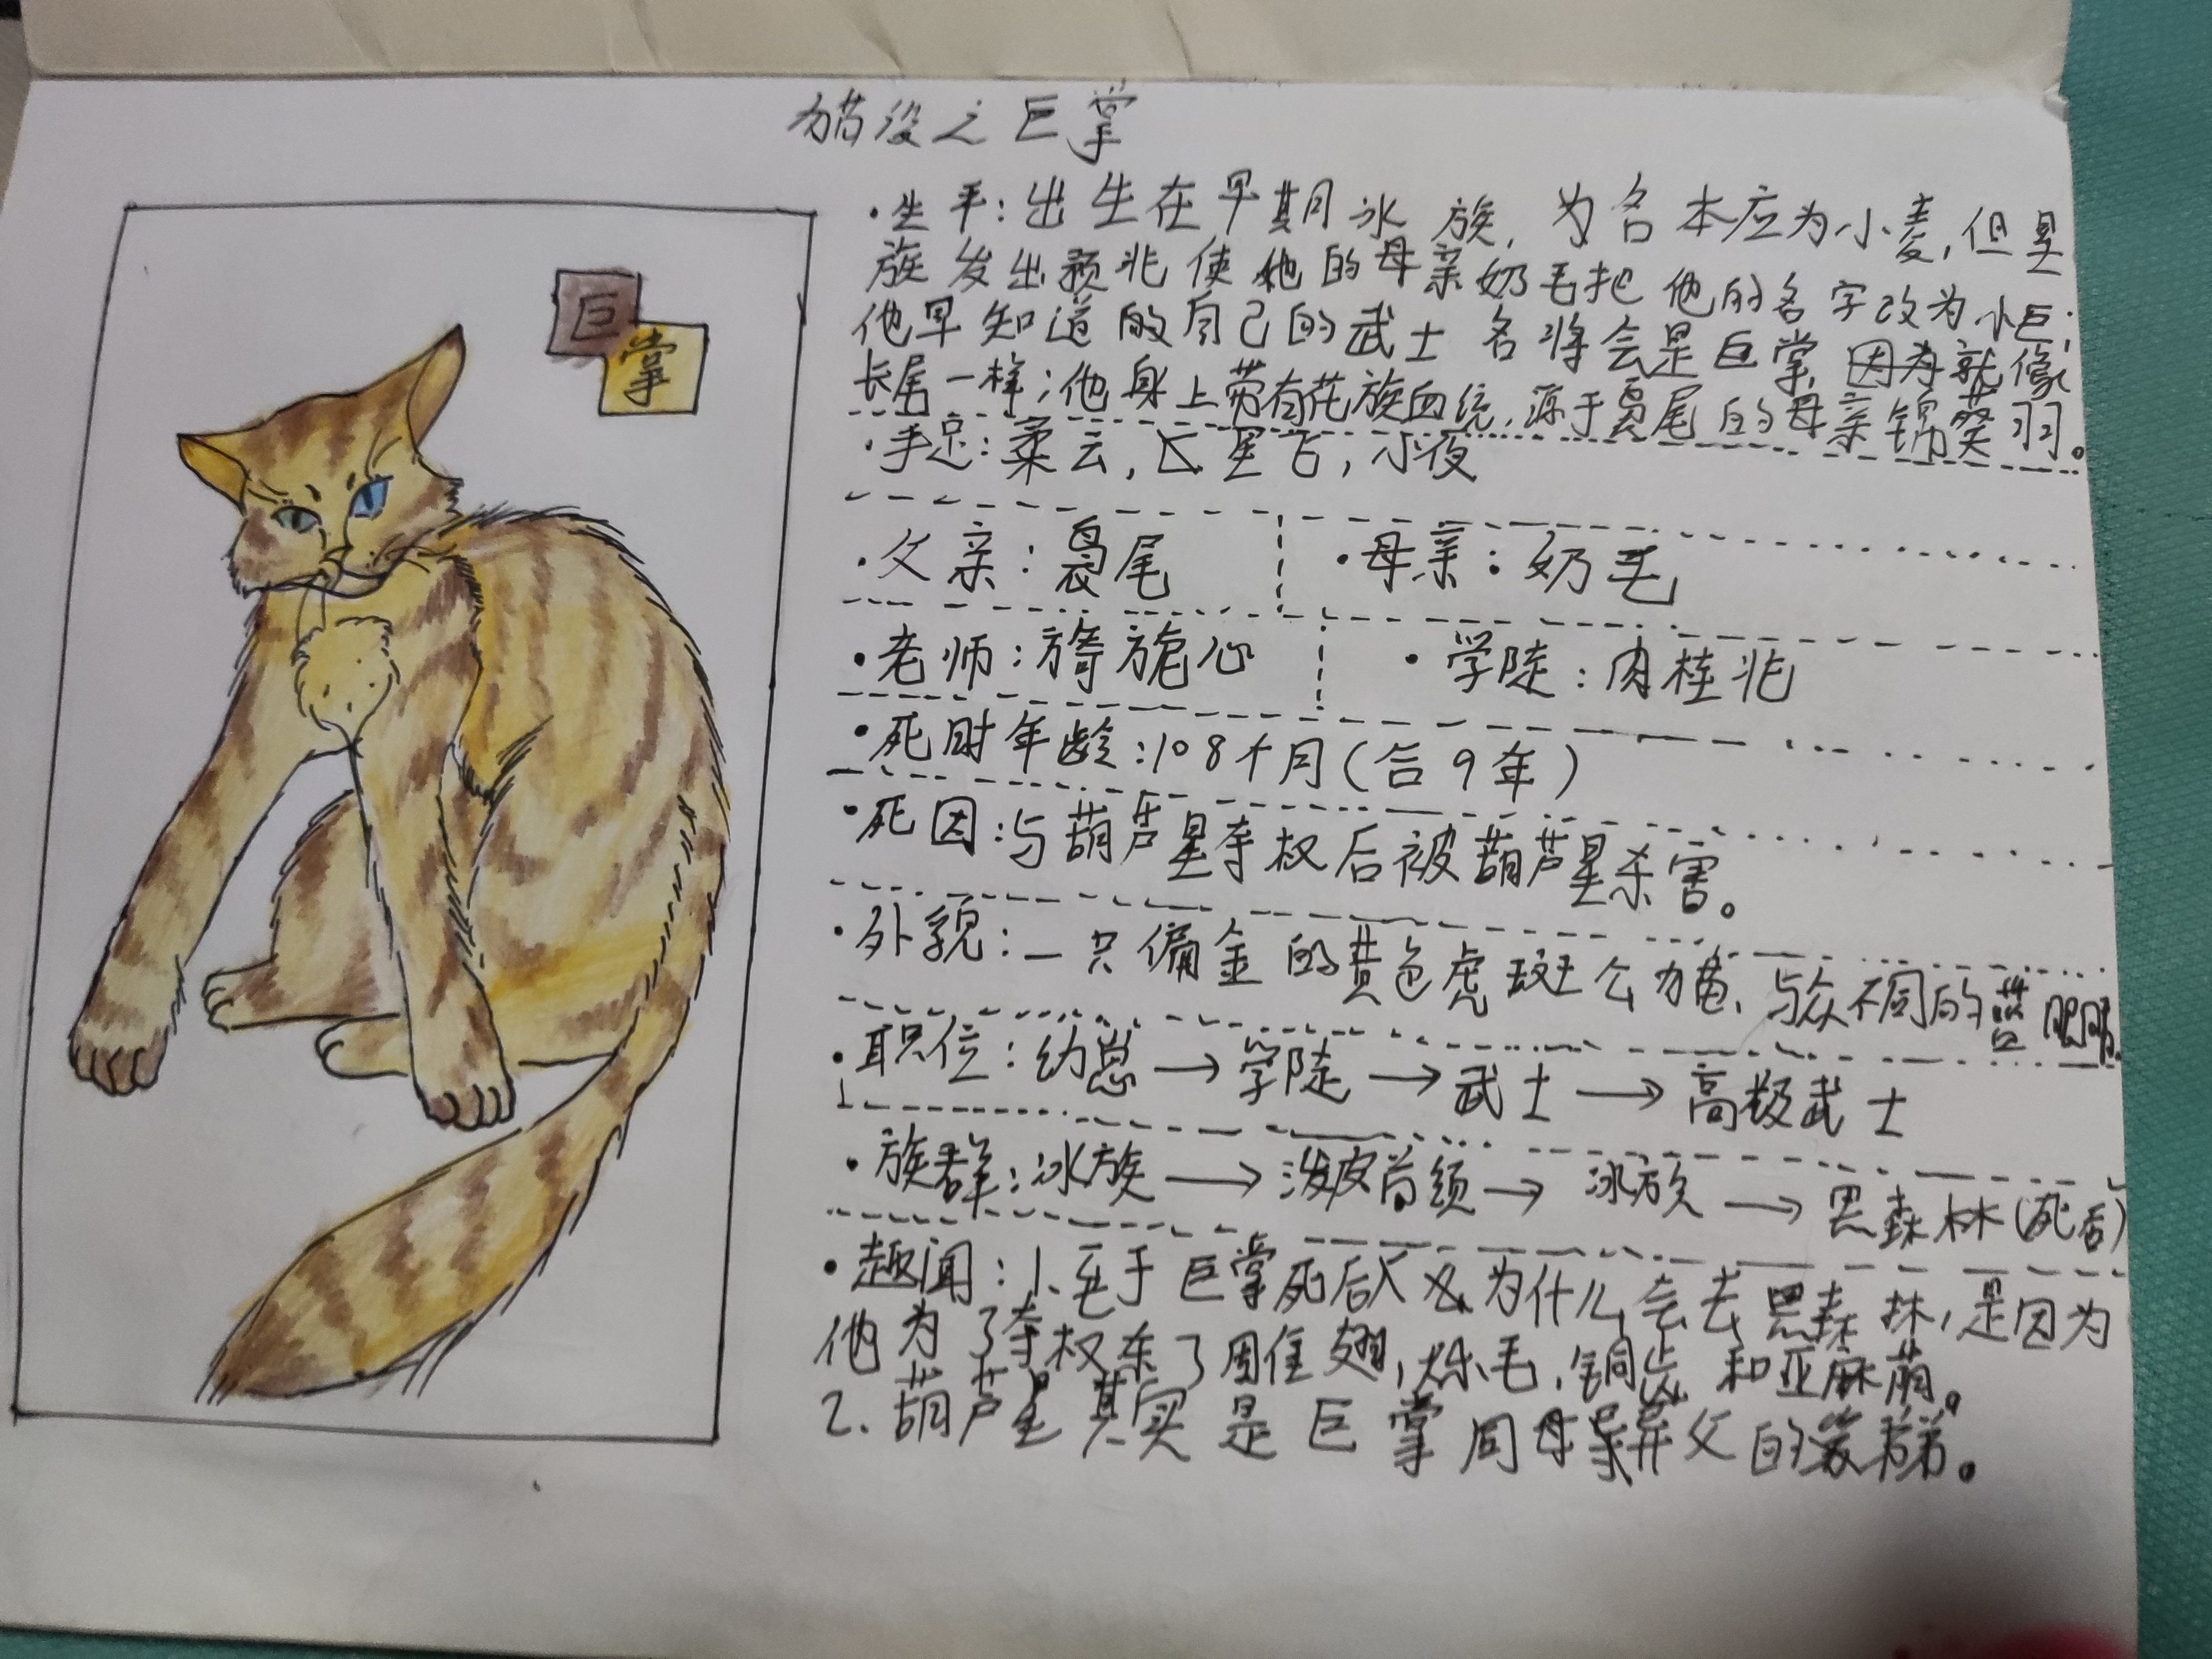 猫设之巨掌
巨
掌
·生平：出生在早期冰族，为名本应为小麦，但星
族发出预兆使他的母亲奶毛把他的名字改为小巨；
他早知道的自己的武士名将会是巨掌，因为就像
长尾一样；他身上带有花族血统，源于曷尾的母亲锦葵羽。
·手足：柔云，小夜
·父亲：曷尾
·母亲：奶毛
·老师：旖旎心
·学徒：肉桂兆
·死时年龄：108个月（合9年）
·死因：与葫芦星夺权后被葫芦星杀害。
·外貌：一只偏金的黄色虎斑公猫，与众不同的蓝眼睛。
·职位：幼崽→学徒→武士→高级武士
·族群：冰族→泼皮首领→冰族→黑森林（死后）
·趣闻：1、至于巨掌死后为什么会去黑森林，是因为
他为了夺权杀了周隹翅，烁毛，铜齿和亚麻荫。
2.葫芦星其实是巨掌同母异父的弟弟。